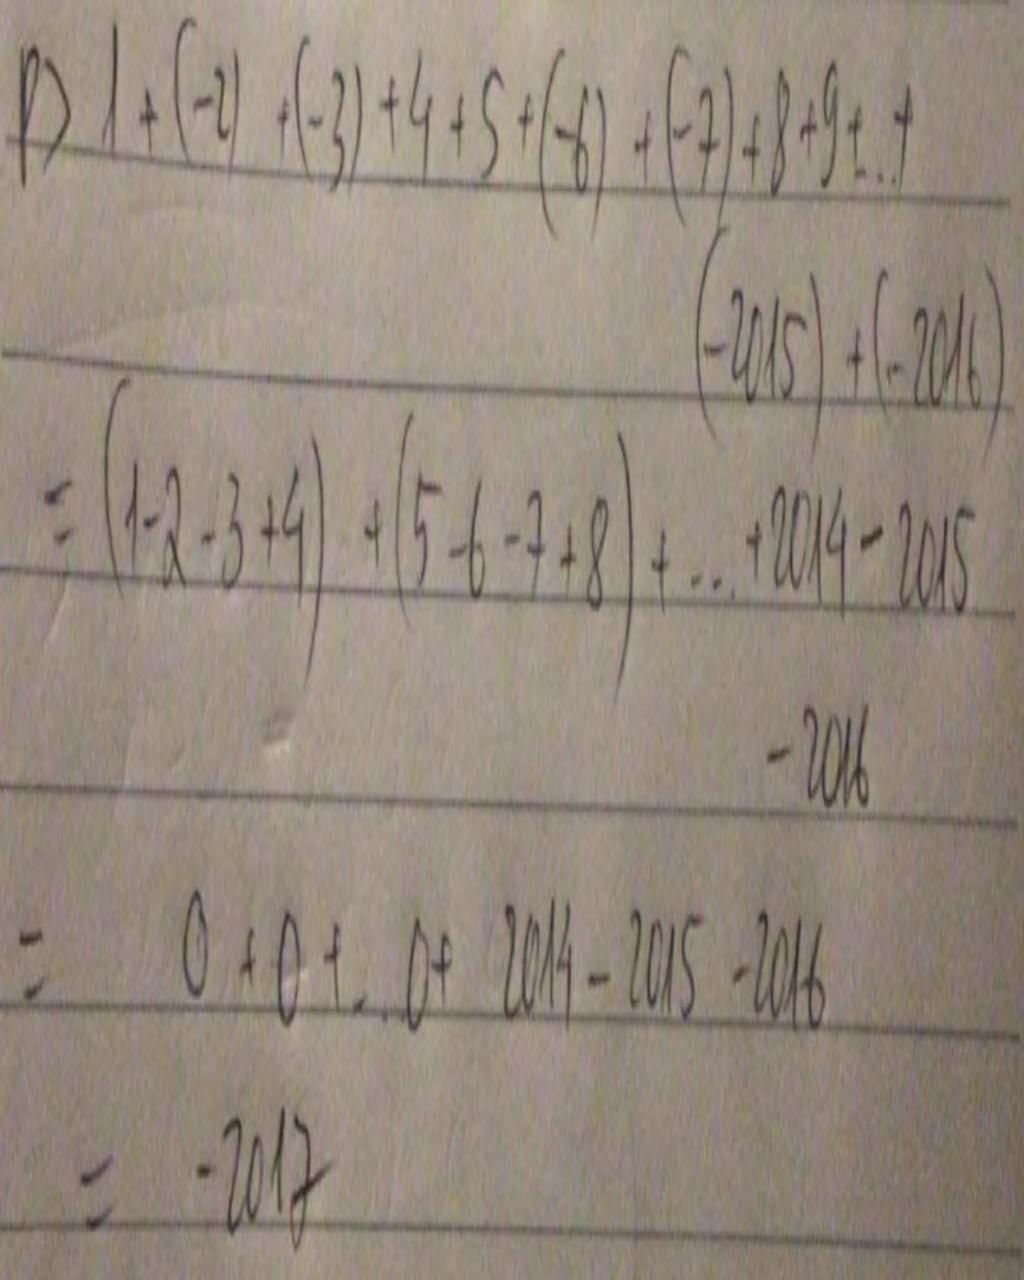 P) 1 + (-2) + (-3) + 4 + 5 + (-6) + (-7) + 8 + 9 + ... +
(-2015) + (-2016)
= (1 - 2 - 3 + 4) + (5 - 6 - 7 + 8) + ... + 2014 - 2015
- 2016
= 0 + 0 + .. 0 + 2014 - 2015 - 2016
= -2017